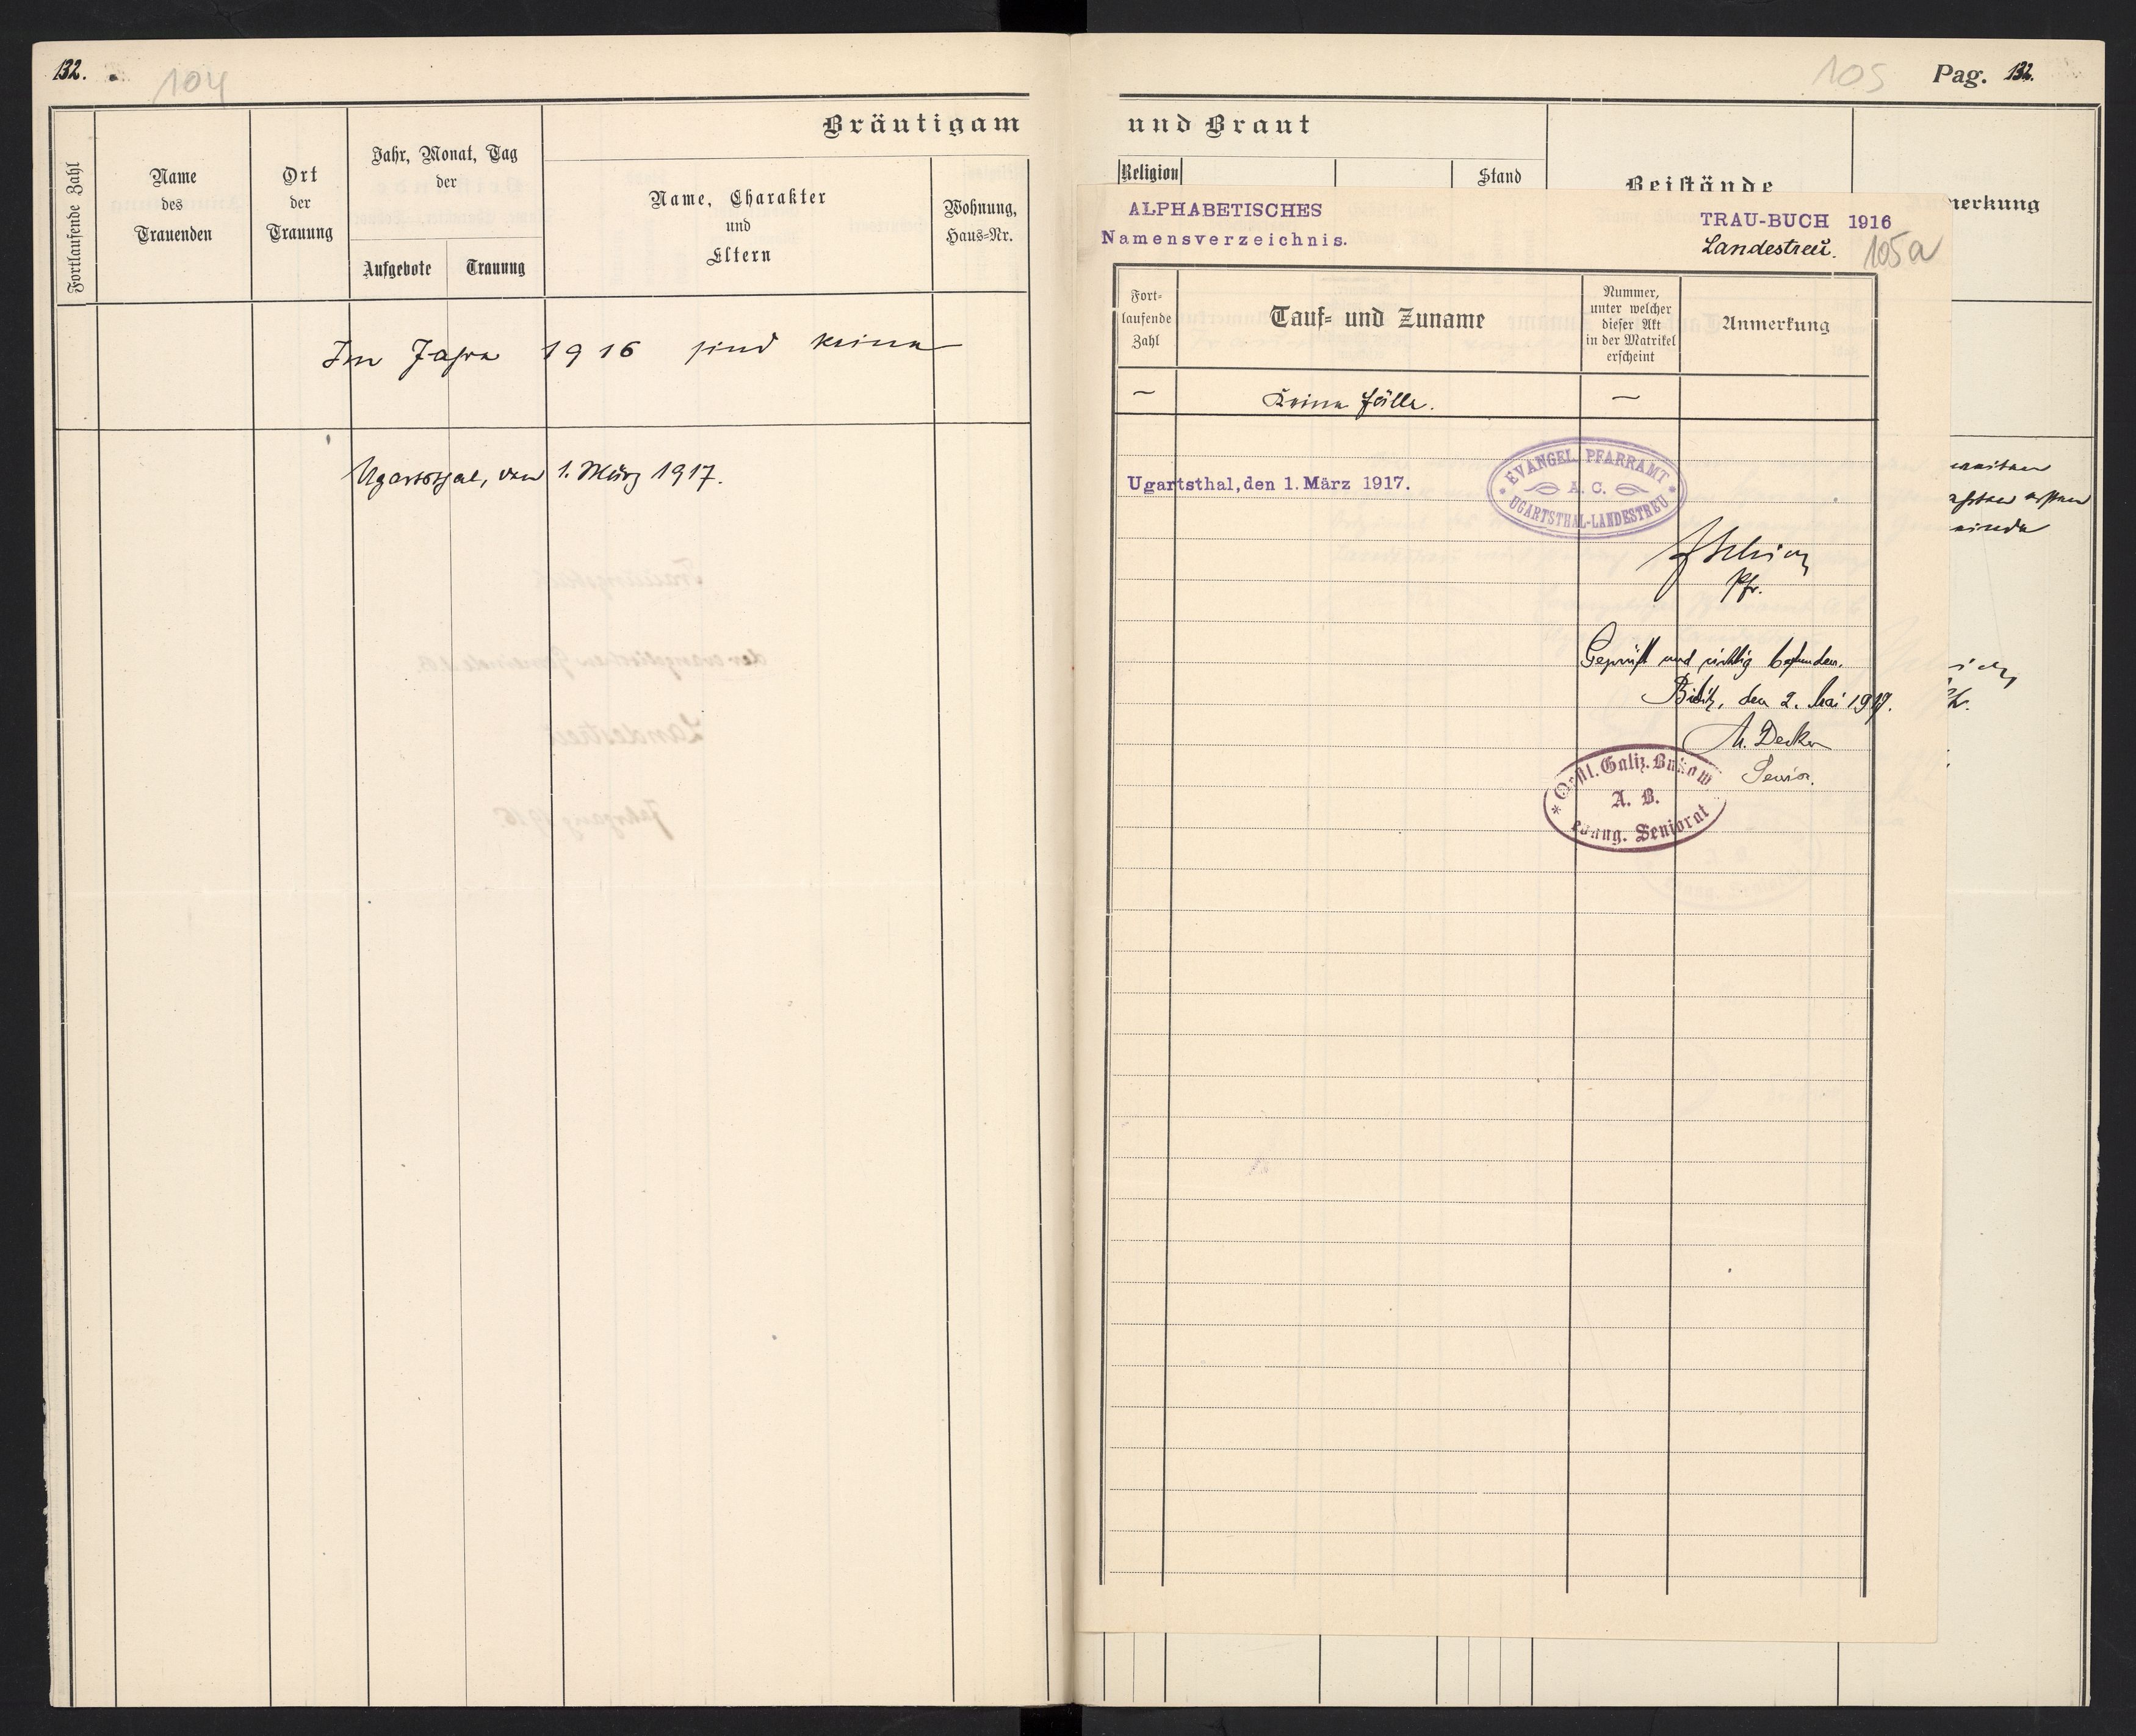 132.
104
Bräutigam
Fortlaufende Zahl
Name
des
Trauenden
Ort
der
Trauung
Jahr, Monat, Tag
der
Aufgebote
Trauung
Name, Charakter
und
Eltern
Wohnung,
Haus=Nr.
Im Jahre 1916 sind keine
Ugartsthal, den 1. März 1917.
105
Pag. 132.
und Braut
Religion
Stand
Beistände
merkung
ALPHABETISCHES
Namensverzeichnis.
TRAU-BUCH 1916
Landestreu.
105a
Fort=
laufende
Zahl
Tauf= und Zuname
Nummer,
unter welcher
dieser Akt
in der Matrikel
erscheint
Anmerkung
— Keine Fälle. —
Ugartsthal, den 1. März 1917.
EVANGEL. PFARRAMT
A. C.
UGARTSTHAL-LANDESTREU
Pfr.
Geprüft und richtig befunden.
Bielitz, den 2. Mai 1917.
M. Decker
Senior.
Oestl. Galiz. Bukow
A. B.
evang. Seniorat